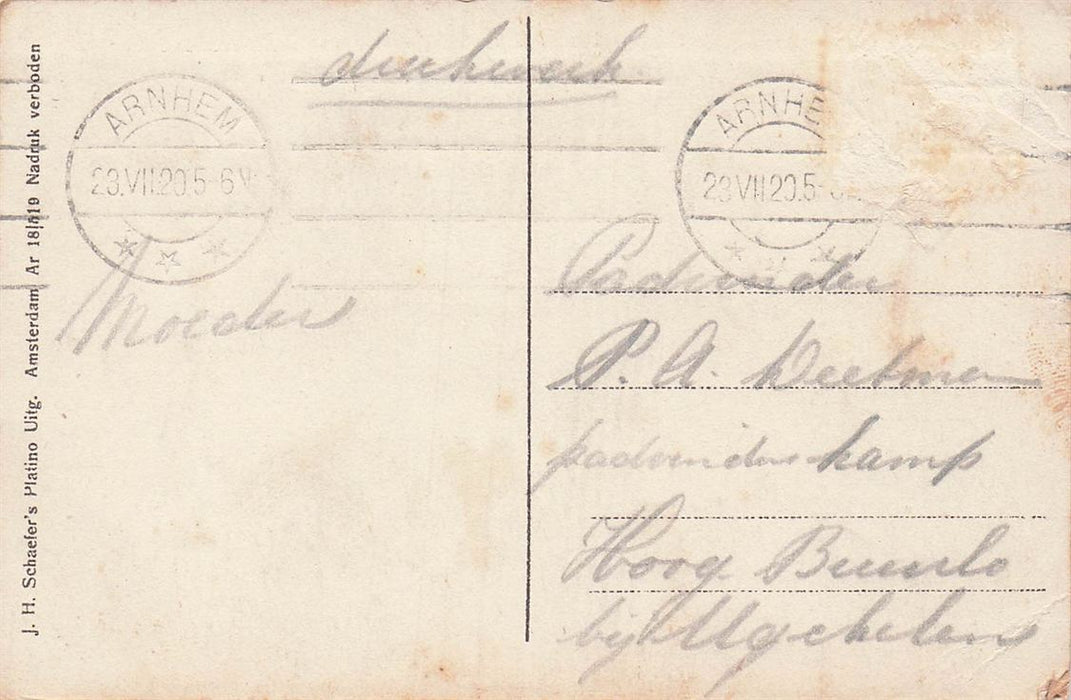 drukwerk
ARNHEM
23.VII.20.5-6 N
ARNHE
23.VII.20.5-6
Moeder
Padvinder
P. A. Weetman
padvinderskamp
Hoog Buurlo
bij Ugchelen
J. H. Schaefer's Platino Uitg. Amsterdam Ar 18|519 Nadruk verboden